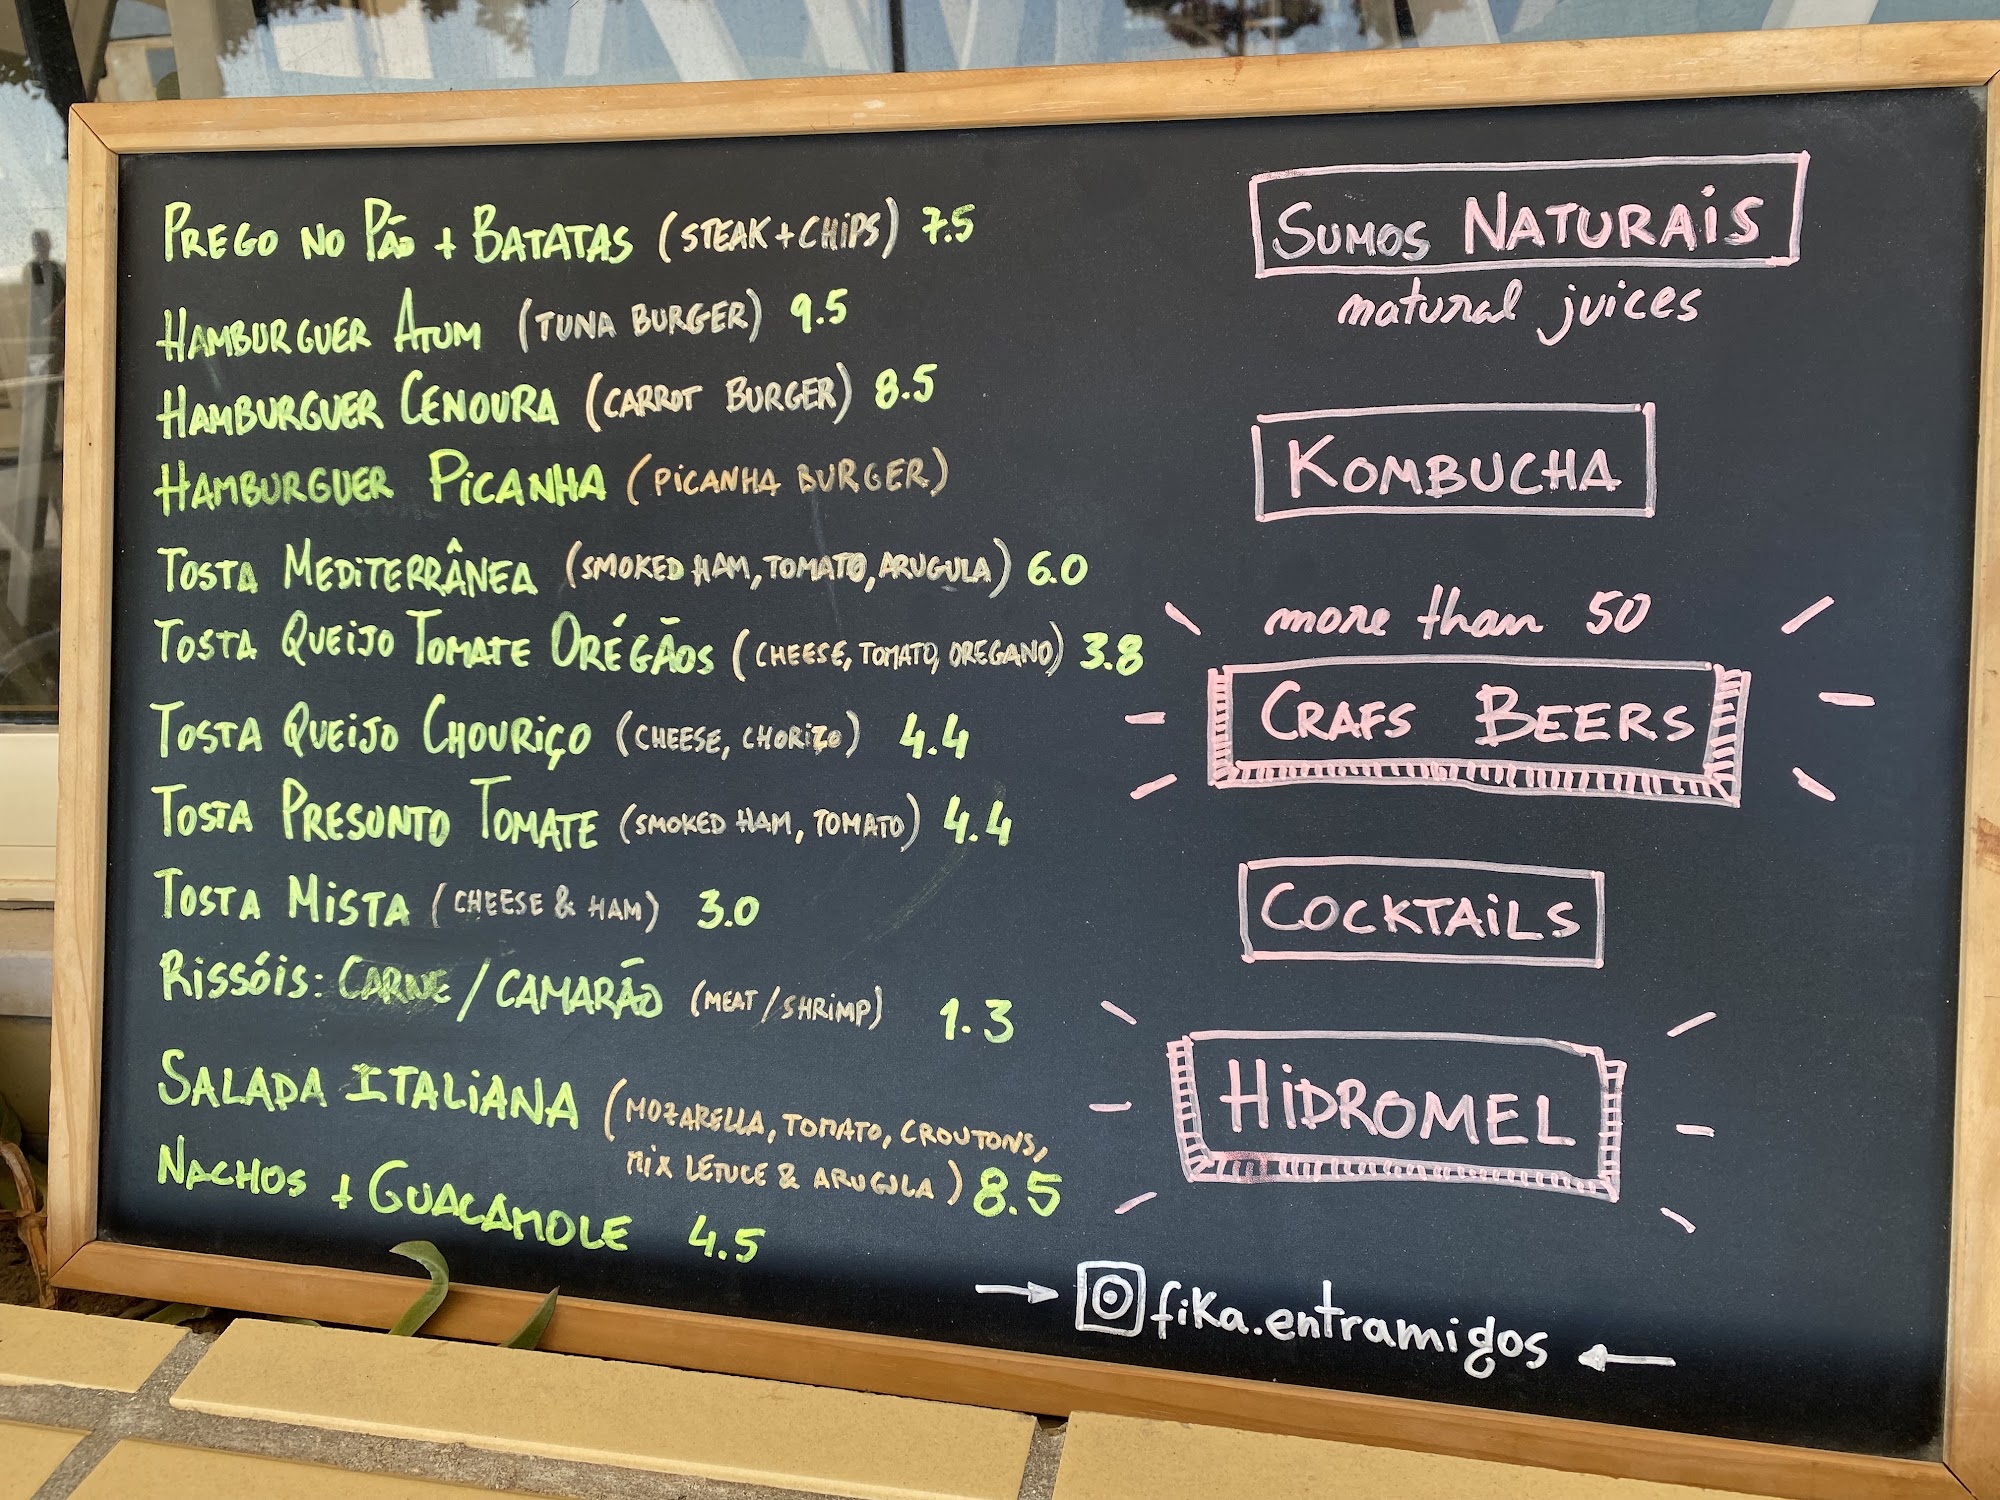 PREGO NO PÃO + BATATAS (STEAK + CHIPS) 7.5
HAMBURGUER ATUM (TUNA BURGER) 9.5
HAMBURGUER CENOURA (CARROT BURGER) 8.5
HAMBURGUER PICANHA (PICANHA BURGER)
TOSTA MEDITERRÂNEA (SMOKED HAM, TOMATO, ARUGULA) 6.0
TOSTA QUEIJO TOMATE ORÉGÃOS (CHEESE, TOMATO, OREGANO) 3.8
TOSTA QUEIJO CHOURIÇO (CHEESE, CHORIZO) 4.4
TOSTA PRESUNTO TOMATE (SMOKED HAM, TOMATO) 4.4
TOSTA MISTA (CHEESE & HAM) 3.0
RISSÓIS: CARNE / CAMARÃO (MEAT / SHRIMP) 1.3
SALADA ITALIANA (MOZARELLA, TOMATO, CROUTONS,
MIX LETUCE & ARUGULA) 8.5
NACHOS + GUACAMOLE 4.5
SUMOS NATURAIS
natural juices
KOMBUCHA
more than 50
CRAFS BEERS
COCKTAILS
HIDROMEL
fika.entramigos